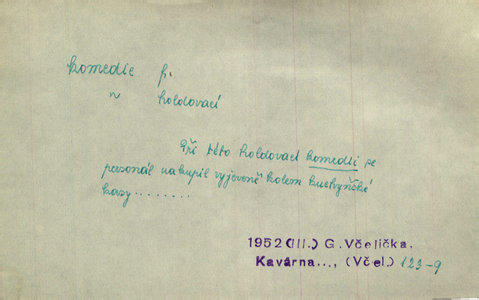 komedie f.
~ holdovací
Při této holdovací komedii se
personál nakupil vyjeveně kolem kuchyňské
kasy ........
1952 (III.) G. Včelička,
Kavárna..., (Včel.) 123-9